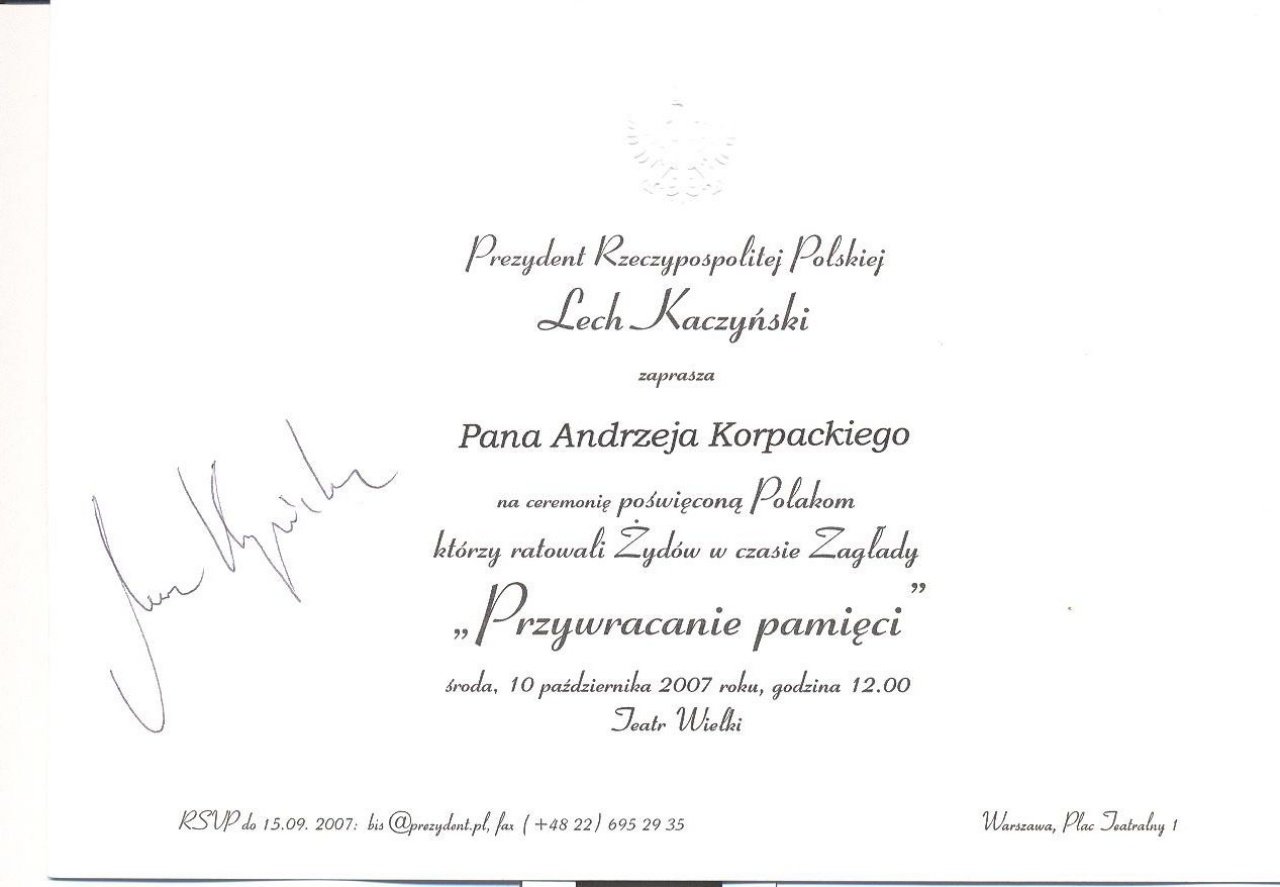 Prezydent Rzeczypospolitej Polskiej
Lech Kaczyński
zaprasza
Pana Andrzeja Korpackiego
na ceremonię poświęconą Polakom
którzy ratowali Żydów w czasie Zagłady
„Przywracanie pamięci”
środa, 10 października 2007 roku, godzina 12.00
Teatr Wielki
RSVP do 15.09. 2007: bis @prezydent.pl, fax ( +48 22) 695 29 35
Warszawa, Plac Teatralny 1